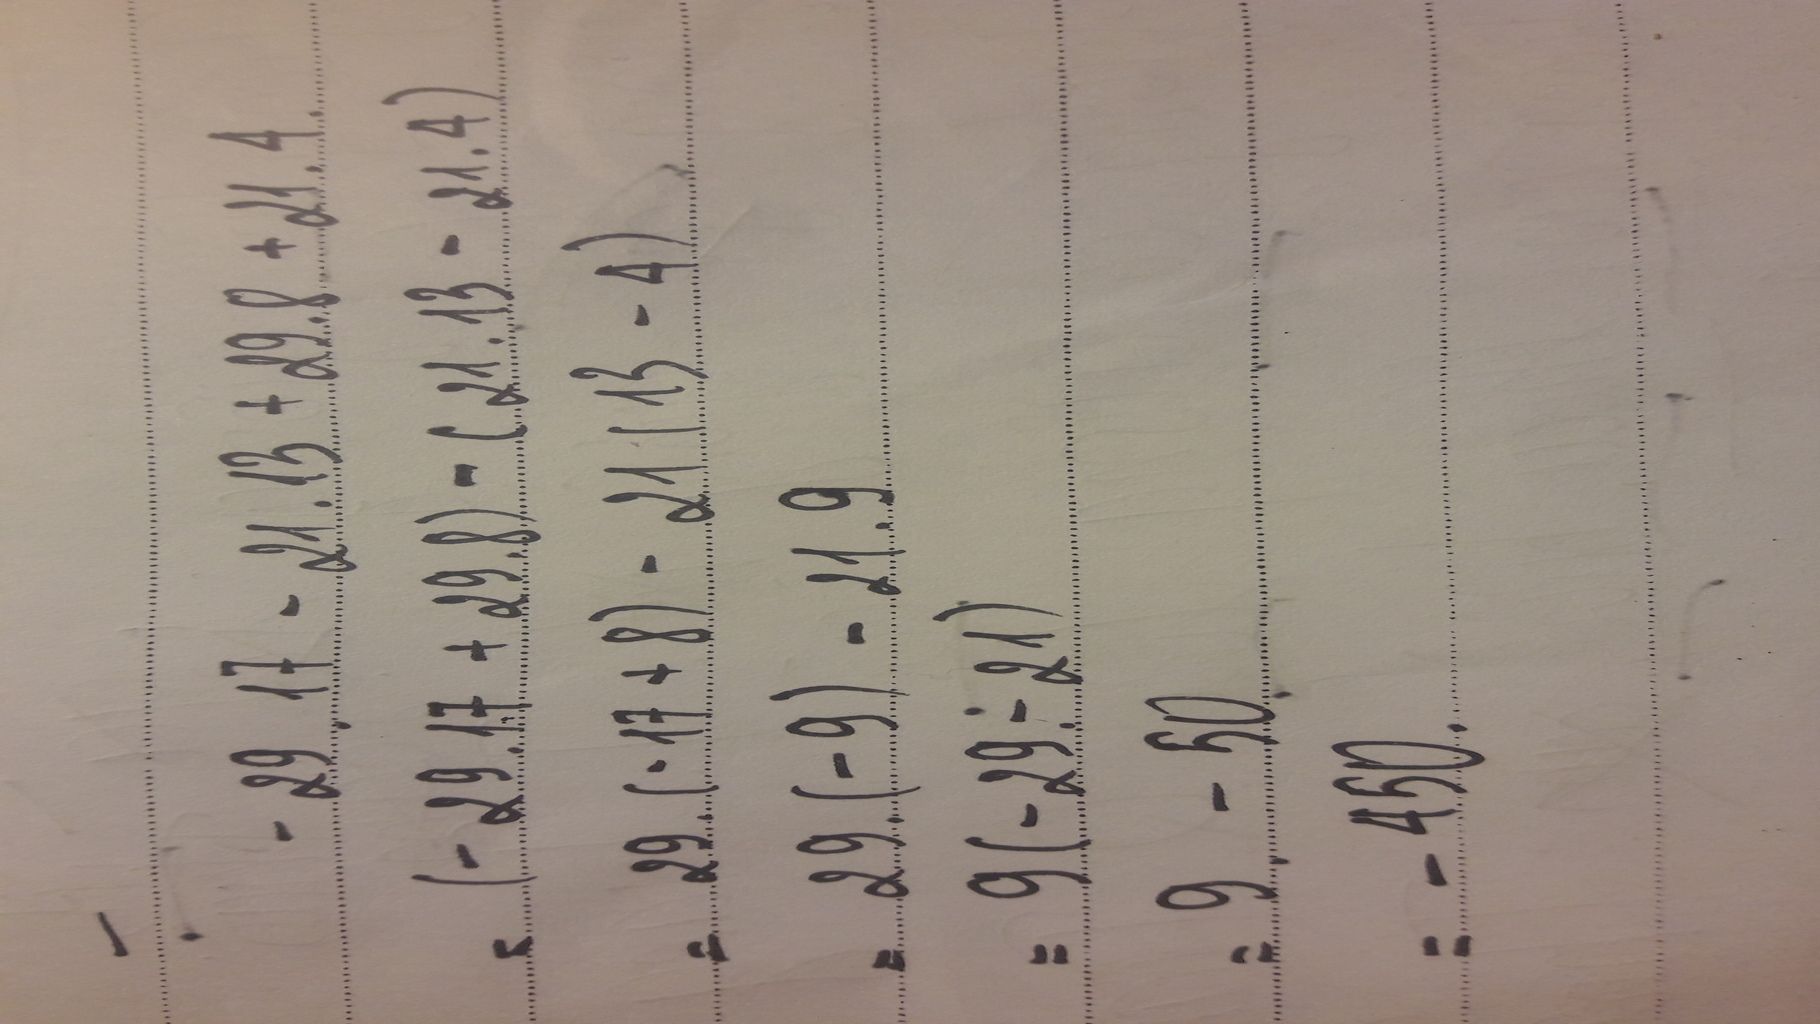 - 29.17 - 21.13 + 29.8 + 21.4
= (- 29.17 + 29.8) - (21.13 - 21.4)
= 29.(-17 + 8) - 21(13 - 4)
= 29.(-9) - 21.9
= 9(-29 - 21)
= 9. - 50.
= - 450.